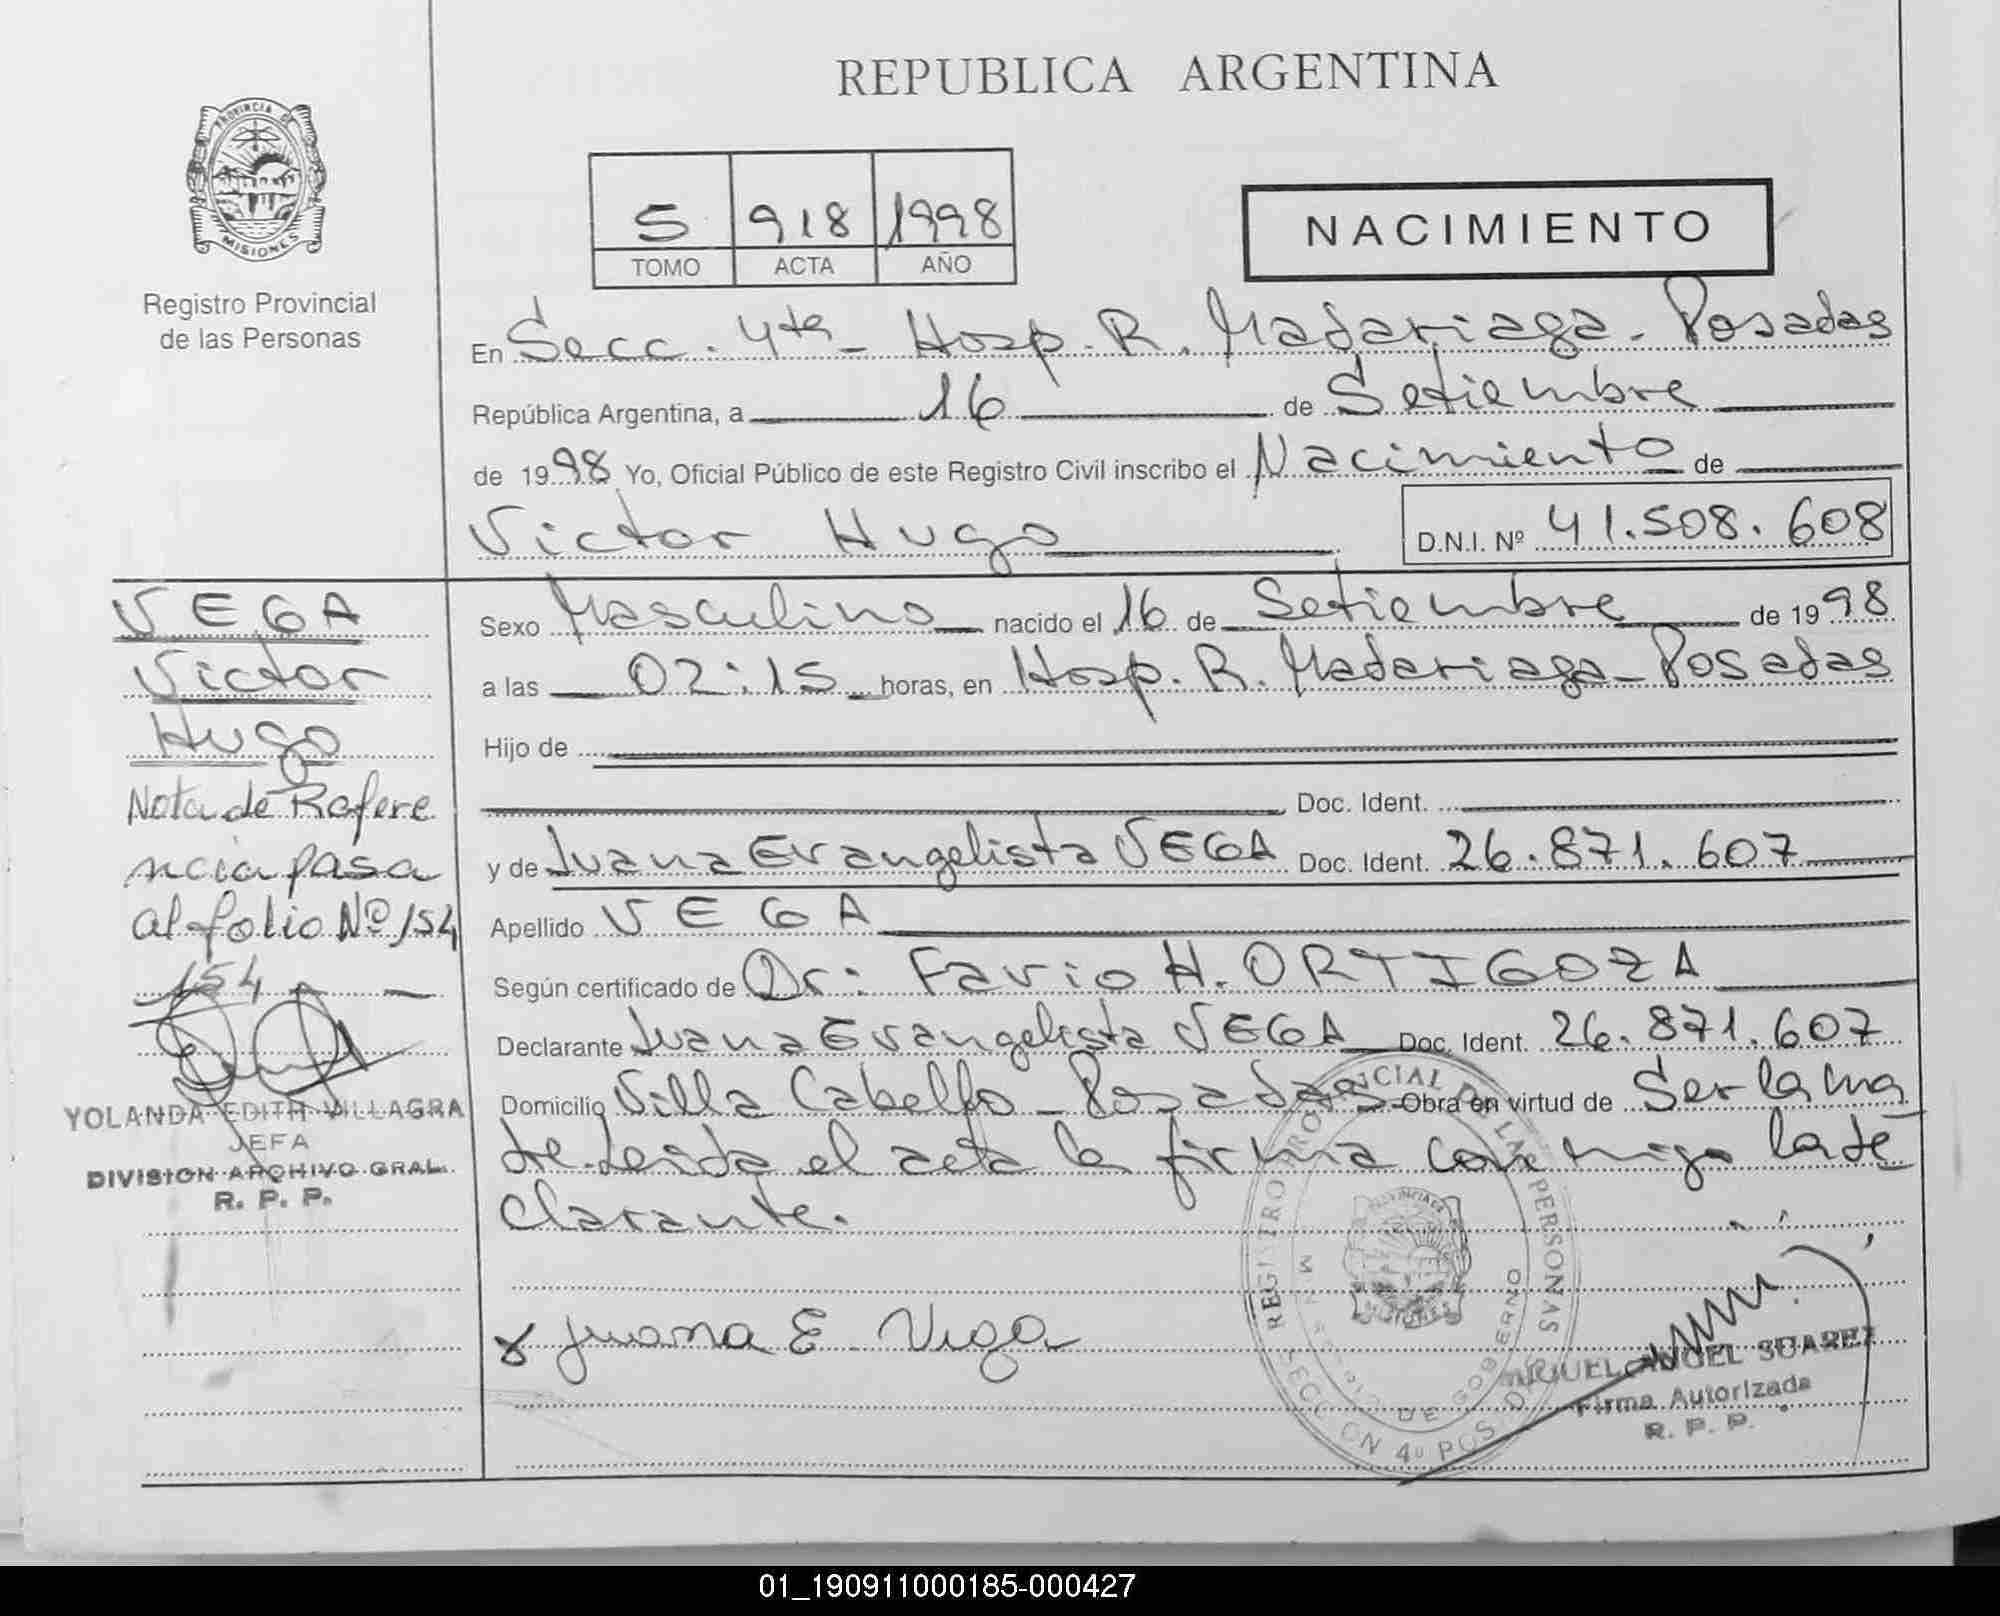 REPUBLICA ARGENTINA
PROVINCIA DE
MISIONES
Registro Provincial
de las Personas
5 918 1998
TOMO ACTA AÑO
NACIMIENTO
En Secc. 4ta - Hosp. R. Madariaga - Posadas
República Argentina, a 16 de Setiembre
de 1998 Yo, Oficial Público de este Registro Civil inscribo el Nacimiento de
Victor Hugo D.N.I. Nº 41.508.608
VEGA
Victor
Hugo
Nota de Refere
ncia pasa
al folio Nº 154
154
YOLANDA EDITH VILLAGRA
JEFA
DIVISION ARCHIVO GRAL.
R. P. P.
Sexo Masculino nacido el 16 de Setiembre de 1998
a las 02:15 horas, en Hosp. R. Madariaga - Posadas
Hijo de
Doc. Ident.
y de Juana Evangelista VEGA Doc. Ident. 26.871.607
Apellido VEGA
Según certificado de Dr: Favio H. ORTIGOZA
Declarante Juana Evangelista VEGA Doc. Ident. 26.871.607
Domicilio Villa Cabello - Posadas Obra en virtud de Ser la ma
dre. Leida el acta la firma conmigo la de
clarante.
Juana E. Vega
REGISTRO PROVINCIAL DE LAS PERSONAS
SECCION 4º POS
DE GOBERNO
MIGUEL ANGEL SUAREZ
Firma Autorizada
R. P. P.
01_190911000185-000427